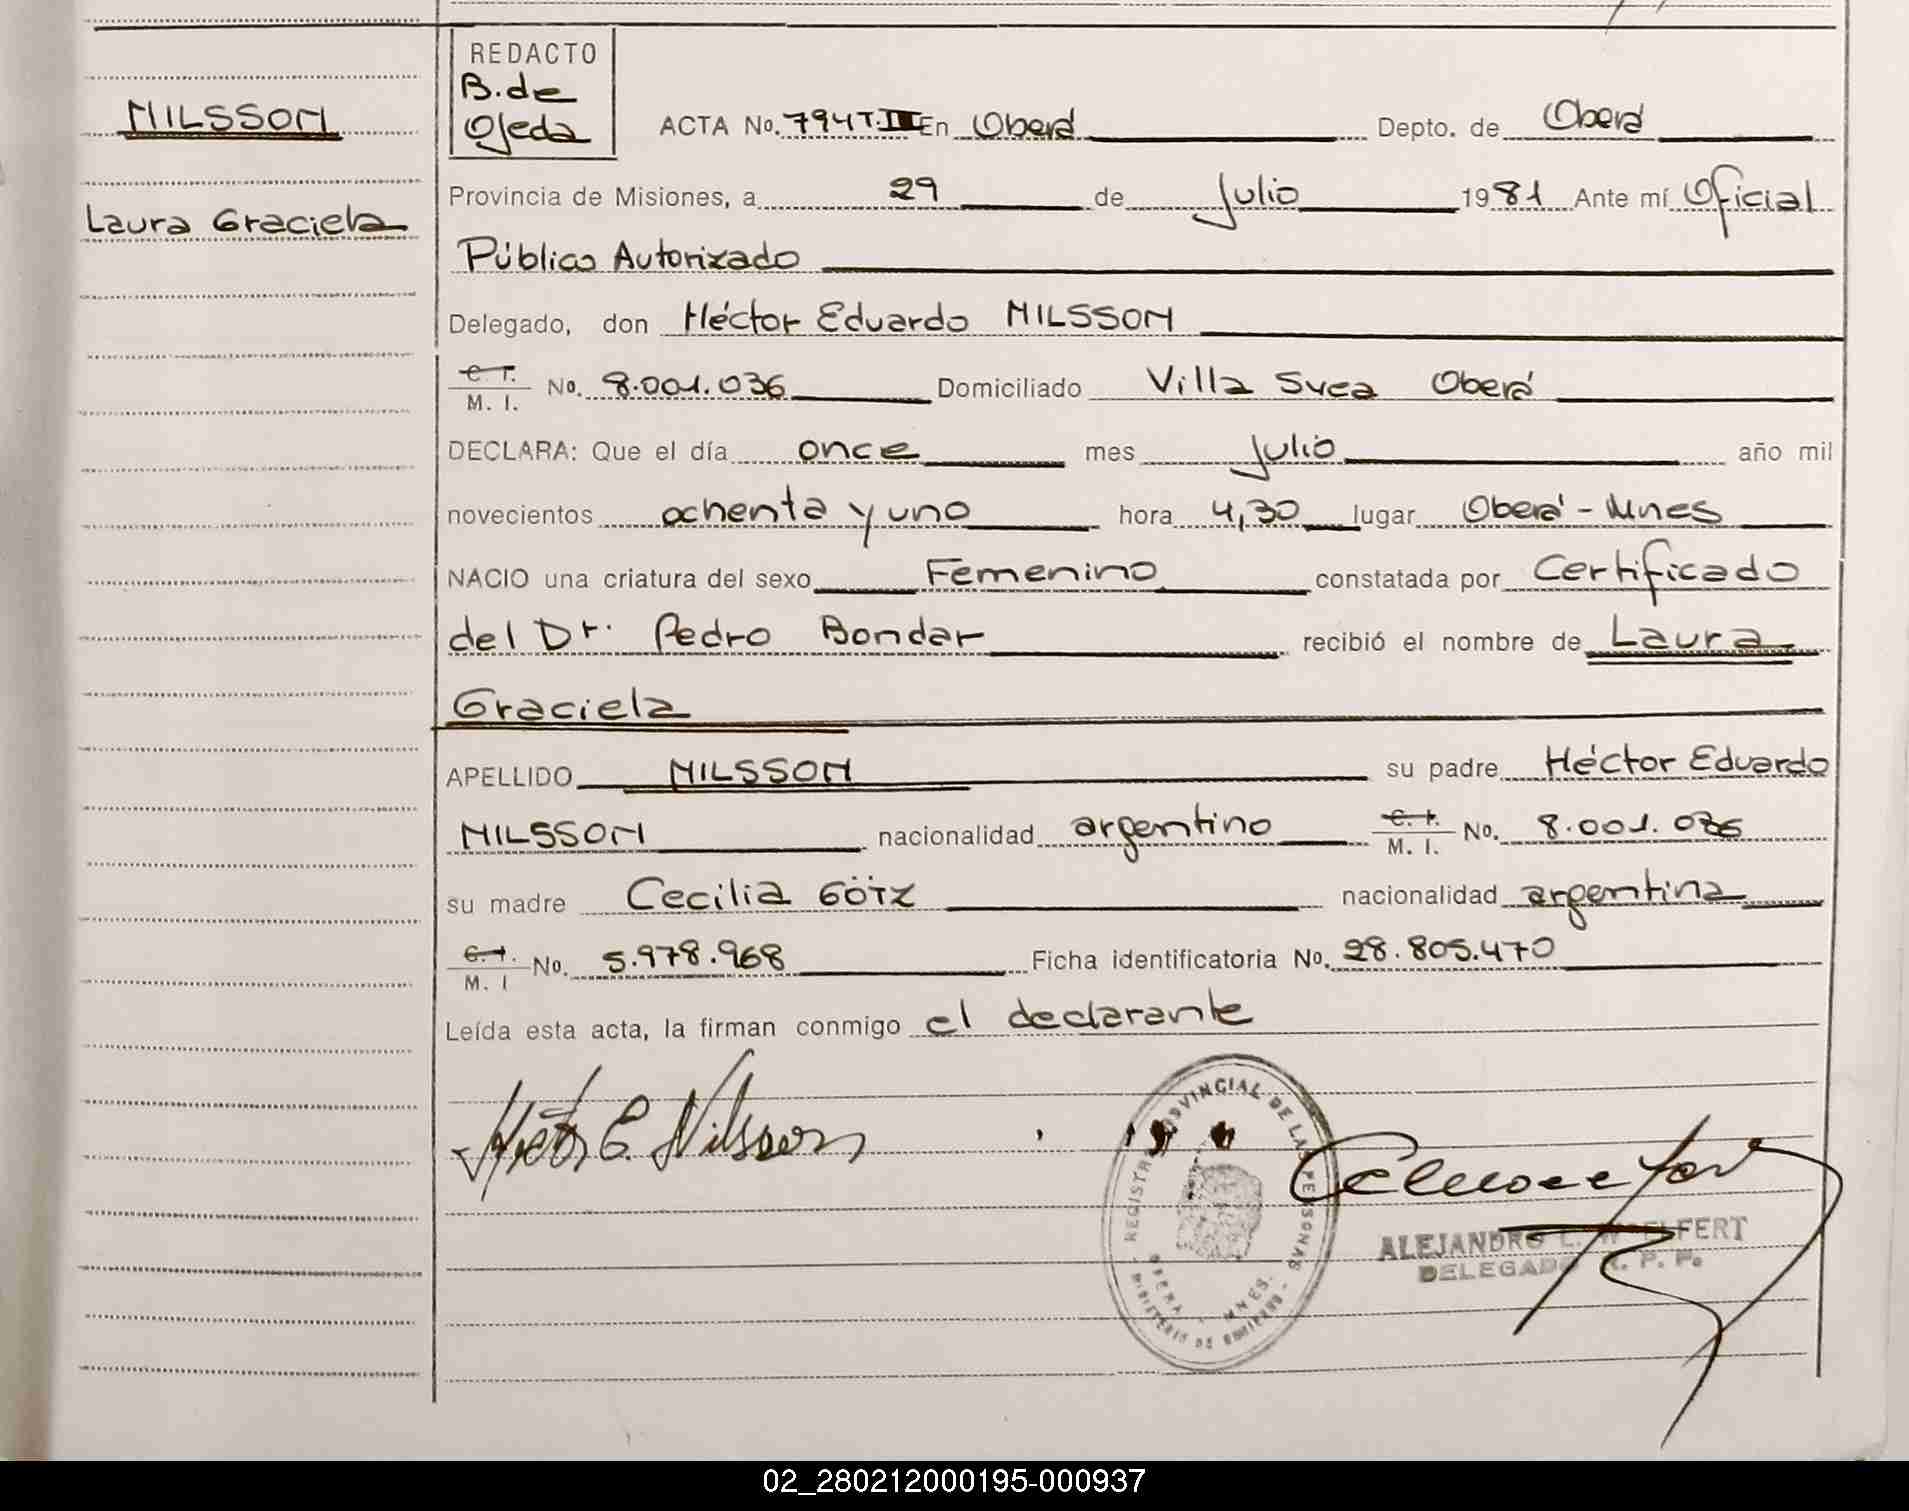 NILSSON
Laura Graciela
REDACTO
B. de
Ojeda
ACTA No. 794 T. III En Oberá Depto. de Oberá
Provincia de Misiones, a 29 de Julio 1981 Ante mí Oficial
Público Autorizado
Delegado, don Héctor Eduardo NILSSON
C. I. M. I. No. 8.001.036 Domiciliado Villa Svea Oberá
DECLARA: Que el día once mes Julio año mil
novecientos ochenta y uno hora 4,30 lugar Oberá - Mnes
NACIO una criatura del sexo Femenino constatada por Certificado
del Dr. Pedro Bondar recibió el nombre de Laura
Graciela
APELLIDO NILSSON su padre Héctor Eduardo
NILSSON nacionalidad argentino C. I. M. I. No. 8.001.036
su madre Cecilia GÖTZ nacionalidad argentina
C. I. M. I No. 5.978.968 Ficha identificatoria No. 28.805.470
Leída esta acta, la firman conmigo el declarante
Héctor E. Nilsson
REGISTRO PROVINCIAL DE LAS PERSONAS
OBERA - MNES.
MINISTERIO DE GOBIERNO
ALEJANDRO
DELEGADO R. P. P.
02_280212000195-000937